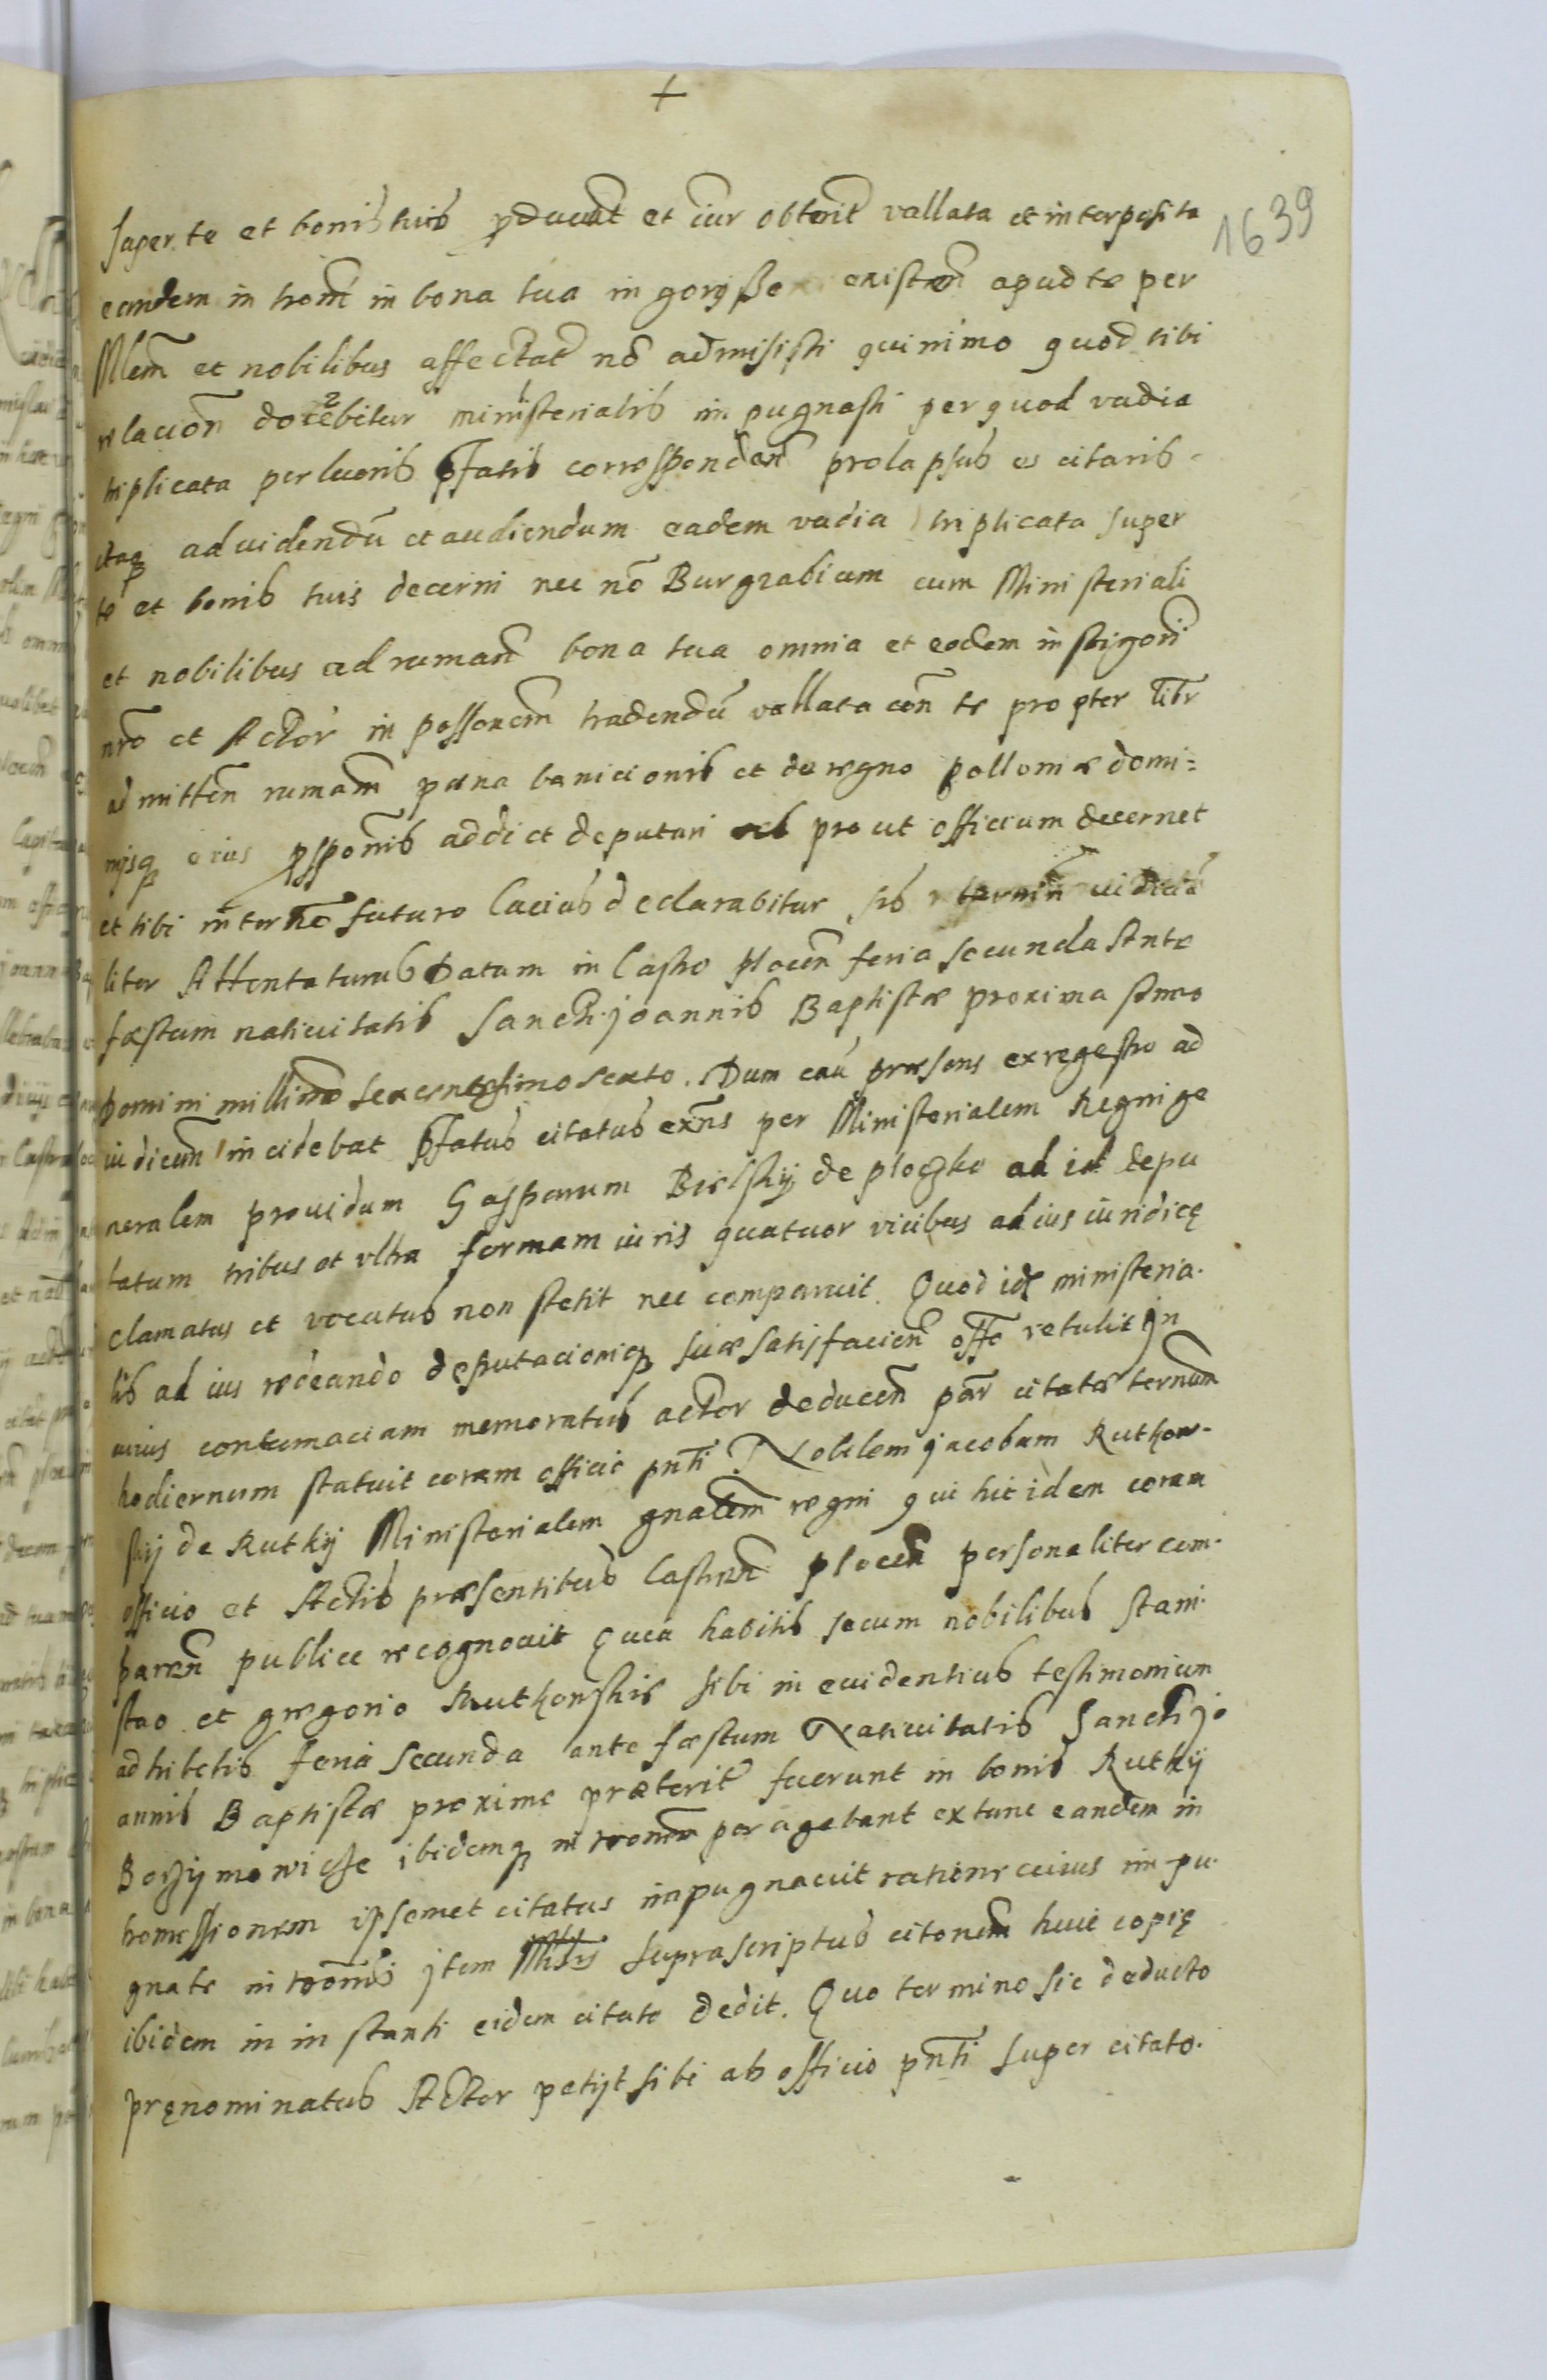 1639
super te et bonis tuis et iur obtent vallata et interposita
eandem in trom in bona tua in existen apud te per
Mlem et nobilibus affectat no admisisti quinimo quod tibi
relacion docebitur ministerialis impugnasti per quod vadia
triplicata perlucris pfatis correspondent prolapsus es citaris
itaq ad uidendu et audiendum eadem vadia triplicata super
te et bonis tuis decerni nec no Burgrabium cum Ministeriali
et nobilibus ad ruman bona tua omnia et eodem in
nro et Actor in possonem tradendu vallata con te propter libr
admitten rumam pæna banicionis et de regno pollomæ domi=
nijsq eius addi et deputari prout officium decernet
et tibi in terno futuro Lacius declarabitur sis termin
liter Attentaturus Datum in Castro plocen feria secunda Ante
fæstum natiuitatis Sancti joannis Baptistæ proxima Anno
Domini millimo sexcentesimo sexto. Dum eaū præsens ex regestro ad
iudicun incidebat pfatus citatus exns per Ministerialem Regni ge
neralem prouidum Gasparum Bielskij de ploczko ad id depu
tatum tribus et vltra formam iuris quatuor vicibus ad ius iuridicę
clamatus et vocatus non stetit nec comparuit. Quod id ministeria
lis ad ius redeando deputacioniq suæ satisfacien offo retulit jn
cuius contumaciam memoratus actor deducen par citatæ ternum
hodiernum statuit coram officio pnti Nobilem jacobum Rutkow-
skij de Rutkij Ministerialem gnalem regni qui hic idem coram
officio et Actis præsentibus Castren plocen personaliter com-
paren publice recognouit Quia habitis secum nobilibus Stani-
slao et gregorio Rutkowskis sibi in euidentius testimonium
adhibitis feria secunda ante fæstum Natiuitatis Sancti jo
annis Baptistæ proxime præterit fuerunt in bonis Rutkij
ibidemq in tronem peragebant extunc eandem in
tromissionem ipsemet citatus impugnauit ratione cuius impu-
gnatæ in tromis jtem supra scriptus citonem huic copię
ibidem in instanti eidem citato dedit. Quo termino sic deducto
prenominatus Actor petijt sibi ab officio pnti super citato